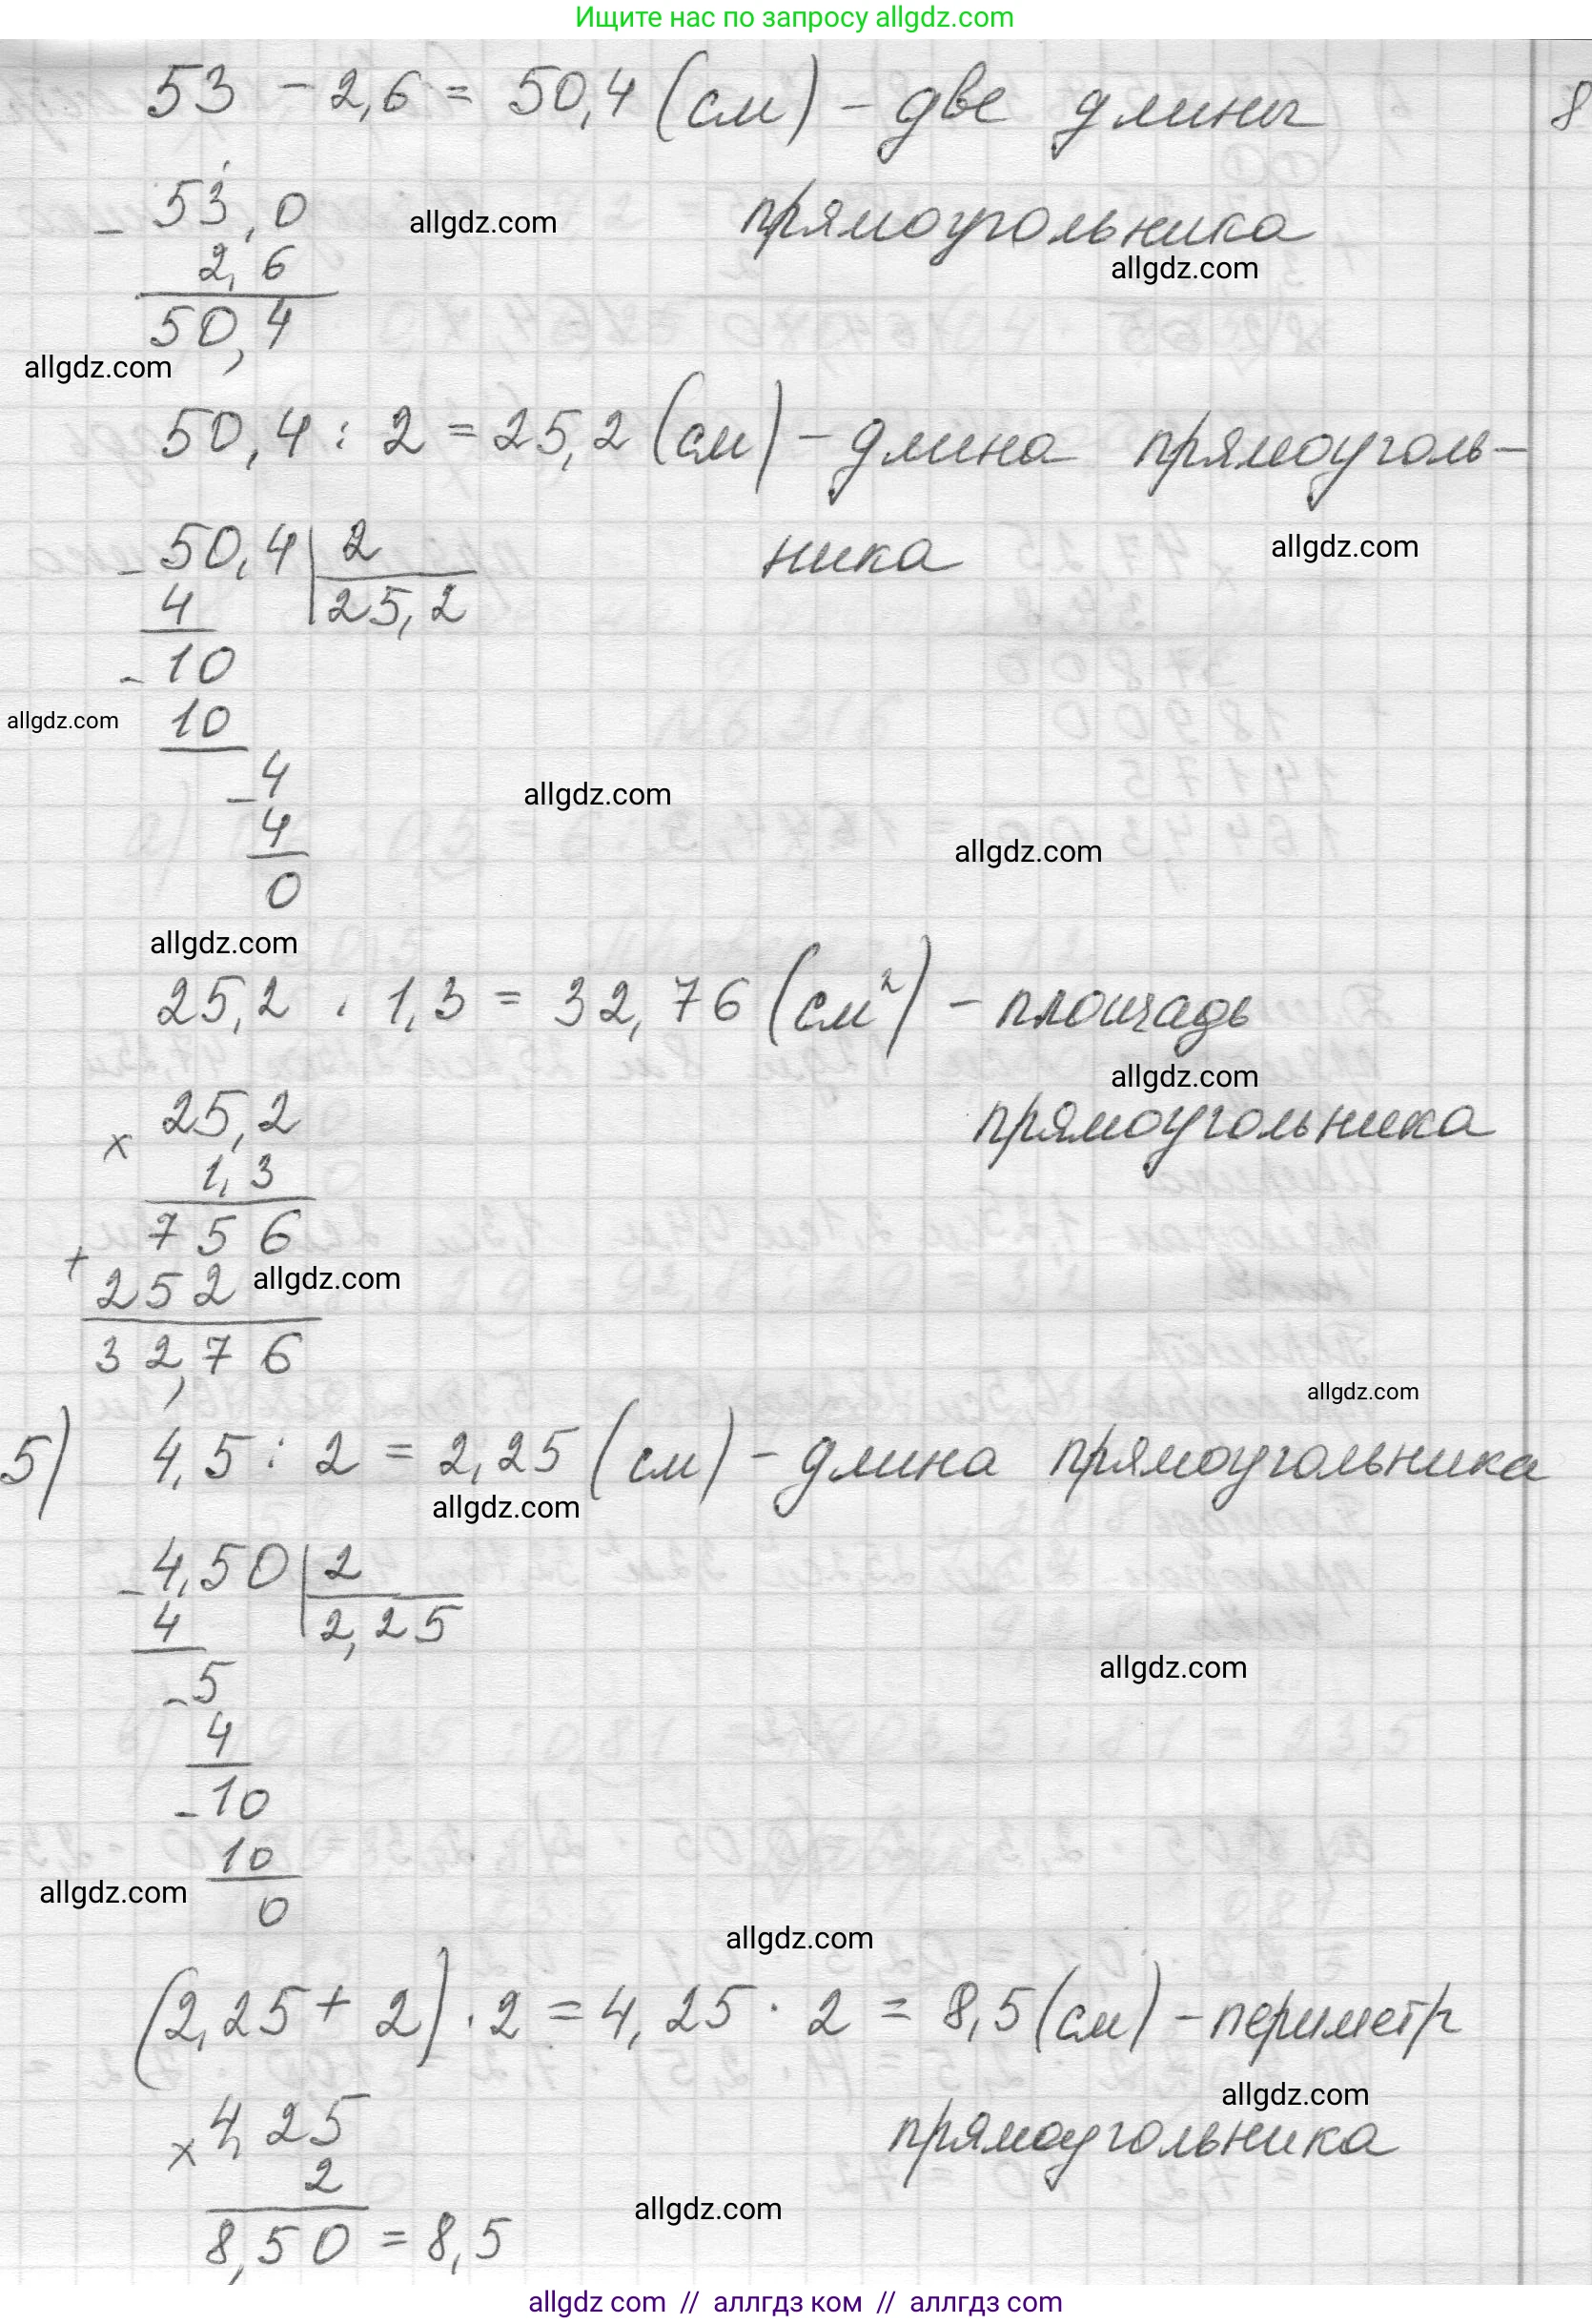 Ищите нас по запросу allgdz.com
53 - 2,6 = 50,4 (см) - две длины
8
прямоугольника
53,0
allgdz.com
- 2,6
allgdz.com
50,4
allgdz.com
50,4 : 2 = 25,2 (см) - длина прямоуголь-
ника
allgdz.com
- 50,4 | 2
4 | 25,2
- 10
allgdz.com
10
- 4
allgdz.com
4
allgdz.com
0
allgdz.com
25,2 · 1,3 = 32,76 (см²) - площадь
allgdz.com
прямоугольника
× 25,2
1,3
+ 756
252
allgdz.com
32,76
allgdz.com
5) 4,5 : 2 = 2,25 (см) - длина прямоугольника
allgdz.com
- 4,50 | 2
4 | 2,25
allgdz.com
- 5
4
- 10
10
allgdz.com
0
allgdz.com
(2,25 + 2) · 2 = 4,25 · 2 = 8,5 (см) - периметр
allgdz.com
прямоугольника
× 4,25
2
allgdz.com
8,50 = 8,5
allgdz com // аллгдз ком // аллгдз com